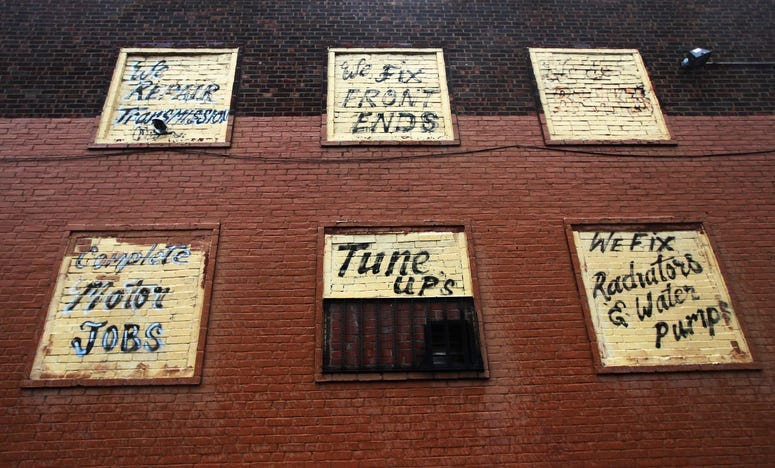 We
REPAIR
TRANSMISSION
We FIX
FRONT
ENDS
We do
Complete
Motor
JOBS
Tune
UP'S
WE FIX
Radiators
& Water
Pumps